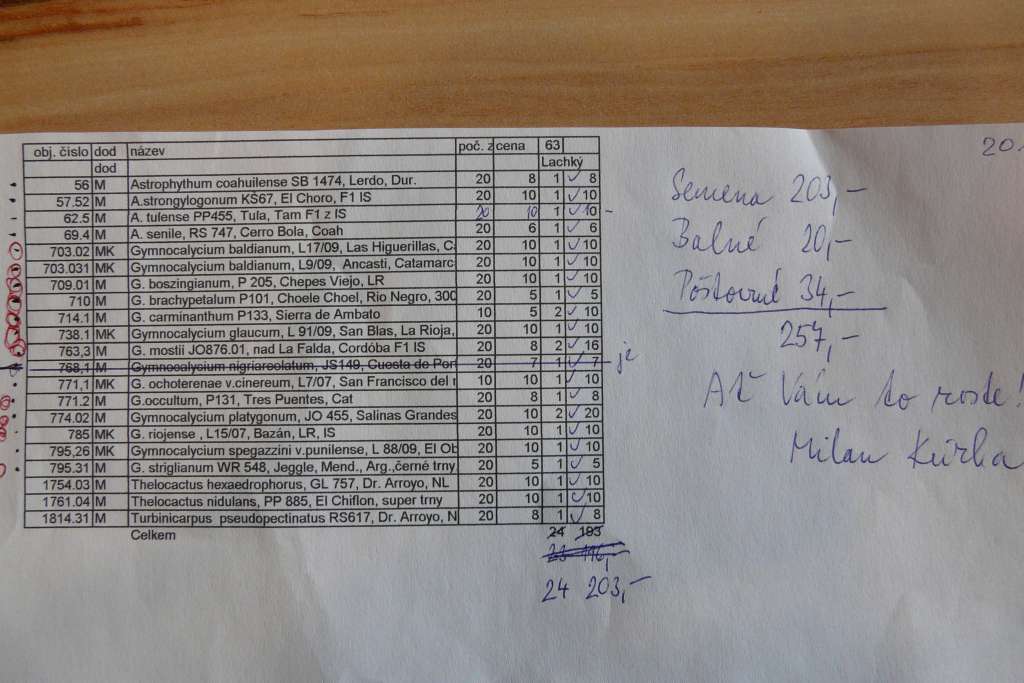 obj. číslo dod název poč. z cena 63
dod Lachký
56 M Astrophythum coahuilense SB 1474, Lerdo, Dur. 20 8 1 8
57.52 M A.strongylogonum KS67, El Choro, F1 IS 20 10 1 10
62.5 M A. tulense PP455, Tula, Tam F1 z IS 20 10 1 10 -
69.4 M A. senile, RS 747, Cerro Bola, Coah 20 6 1 6
703.02 MK Gymnocalycium baldianum, L17/09, Las Higuerillas, C 20 10 1 10
703.031 MK Gymnocalycium baldianum, L9/09, Ancasti, Catamarc 20 10 1 10
709.01 M G. boszingianum, P 205, Chepes Viejo, LR 20 10 1 10
710 M G. brachypetalum P101, Choele Choel, Rio Negro, 300 20 5 1 5
714.1 M G. carminanthum P133, Sierra de Ambato 10 5 2 10
738.1 MK Gymnocalycium glaucum, L 91/09, San Blas, La Rioja, 20 10 1 10
763,3 M G. mostii JO876.01, nad La Falda, Cordóba F1 IS 20 8 2 16
768,1 M Gymnocalycium nigriareolatum, JS149, Cuesta de Por 20 7 1 7 - je
771,1 MK G. ochoterenae v.cinereum, L7/07, San Francisco del 10 10 1 10
771.2 M G.occultum, P131, Tres Puentes, Cat 20 8 1 8
774.02 M Gymnocalycium platygonum, JO 455, Salinas Grandes 20 10 2 20
785 MK G. riojense , L15/07, Bazán, LR, IS 20 10 1 10
795,26 MK Gymnocalycium spegazzini v.punilense, L 88/09, El Ob 20 10 1 10
795.31 M G. striglianum WR 548, Jeggle, Mend., Arg.,černé trny 20 5 1 5
1754.03 M Thelocactus hexaedrophorus, GL 757, Dr. Arroyo, NL 20 10 1 10
1761.04 M Thelocactus nidulans, PP 885, El Chiflon, super trny 20 10 1 10
1814.31 M Turbinicarpus pseudopectinatus RS617, Dr. Arroyo, N 20 8 1 8
Celkem 24 193
24 203,-
20.
Semena 203,-
Balné 20,-
Poštovné 34,-
257,-
Ať Vám to roste!
Milan Kůrka